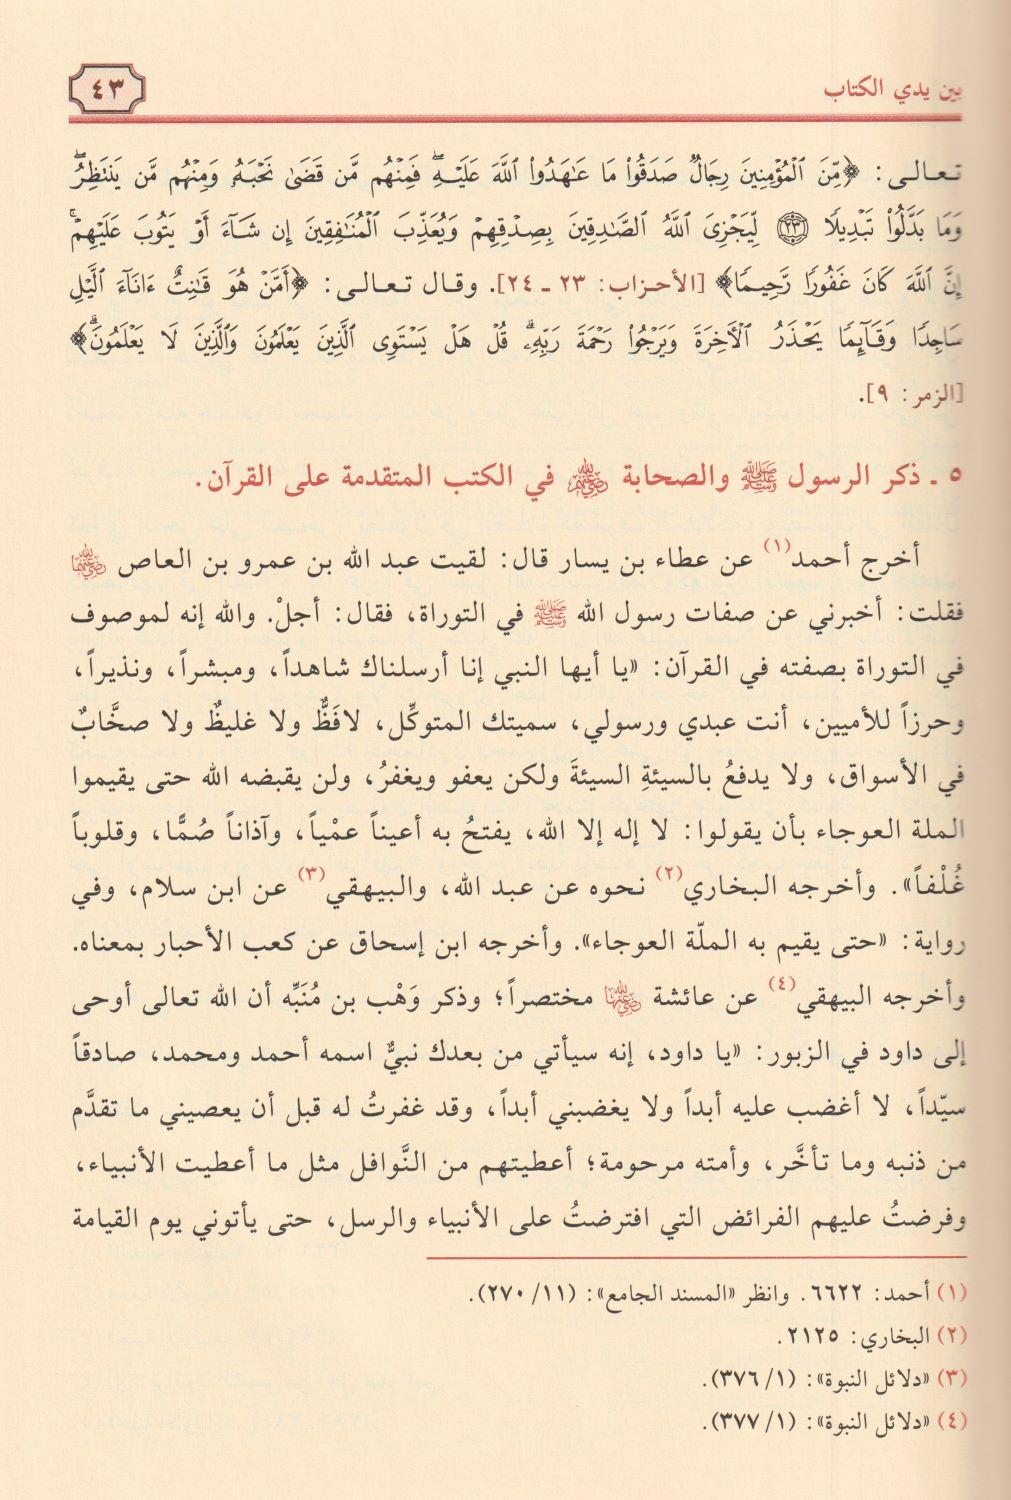 بين يدي الكتاب
٤٣
تعالى: ﴿مِّنَ ٱلْمُؤْمِنِينَ رِجَالٌ صَدَقُوا۟ مَا عَـٰهَدُوا۟ ٱللَّهَ عَلَيْهِ ۖ فَمِنْهُم مَّن قَضَىٰ نَحْبَهُۥ وَمِنْهُم مَّن يَنتَظِرُ ۖ
وَمَا بَدَّلُوا۟ تَبْدِيلًا ﴿٢٣﴾ لِّيَجْزِىَ ٱللَّهُ ٱلصَّـٰدِقِينَ بِصِدْقِهِمْ وَيُعَذِّبَ ٱلْمُنَـٰفِقِينَ إِن شَآءَ أَوْ يَتُوبَ عَلَيْهِمْ ۚ
إِنَّ ٱللَّهَ كَانَ غَفُورًا رَّحِيمًا﴾ [الأحزاب: ٢٣ ـ ٢٤]. وقال تعالى: ﴿أَمَّنْ هُوَ قَـٰنِتٌ ءَانَآءَ ٱلَّيْلِ
سَاجِدًا وَقَآئِمًا يَحْذَرُ ٱلْـَٔاخِرَةَ وَيَرْجُوا۟ رَحْمَةَ رَبِّهِۦ ۗ قُلْ هَلْ يَسْتَوِى ٱلَّذِينَ يَعْلَمُونَ وَٱلَّذِينَ لَا يَعْلَمُونَ ۗ﴾
[الزمر: ٩].
٥ ـ ذكر الرسول ﷺ والصحابة رضي الله عنهم في الكتب المتقدمة على القرآن.
أخرج أحمد(١) عن عطاء بن يسار قال: لقيت عبد الله بن عمرو بن العاص رضي الله عنهما
فقلت: أخبرني عن صفات رسول الله ﷺ في التوراة، فقال: أجلْ. والله إنه لموصوف
في التوراة بصفته في القرآن: «يا أيها النبي إنا أرسلناك شاهداً، ومبشراً، ونذيراً،
وحرزاً للأميين، أنت عبدي ورسولي، سميتك المتوكِّل، لافَظٌّ ولا غليظٌ ولا صخَّابٌ
في الأسواق، ولا يدفعُ بالسيئةِ السيئةَ ولكن يعفو ويغفرُ، ولن يقبضه الله حتى يقيموا
الملة العوجاء بأن يقولوا: لا إله إلا الله، يفتحُ به أعيناً عمْياً، وآذاناً صُمًّا، وقلوباً
غُلْفاً». وأخرجه البخاري(٢) نحوه عن عبد الله، والبيهقي(٣) عن ابن سلام، وفي
رواية: «حتى يقيم به الملّة العوجاء». وأخرجه ابن إسحاق عن كعب الأحبار بمعناه.
وأخرجه البيهقي(٤) عن عائشة رضي الله عنها مختصراً؛ وذكر وَهْب بن مُنَبِّه أن الله تعالى أوحى
إلى داود في الزبور: «يا داود، إنه سيأتي من بعدك نبيٌّ اسمه أحمد ومحمد، صادقاً
سيّداً، لا أغضب عليه أبداً ولا يغضبني أبداً، وقد غفرتُ له قبل أن يعصيني ما تقدَّم
من ذنبه وما تأخَّر، وأمته مرحومة؛ أعطيتهم من النَّوافل مثل ما أعطيت الأنبياء،
وفرضتُ عليهم الفرائض التي افترضتُ على الأنبياء والرسل، حتى يأتوني يوم القيامة
(١) أحمد: ٦٦٢٢. وانظر «المسند الجامع»: (١١/ ٢٧٠).
(٢) البخاري: ٢١٢٥.
(٣) «دلائل النبوة»: (١/ ٣٧٦).
(٤) «دلائل النبوة»: (١/ ٣٧٧).